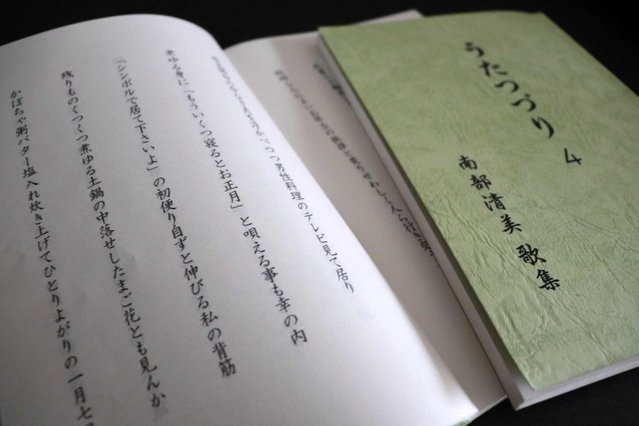 うたつづり 4
南部清美 歌集
男性料理のテレビ見て居り
老ゆる身に「もういくつ寝るとお正月」と唄える事も幸の内
「シンボルで居て下さいよ」の初便り自ずと伸びる私の背筋
残りものくつくつ煮ゆる土鍋の中落せしたまご花とも見んか
かぼちゃ粥バター塩入れ炊き上げてひとりよがりの一月七